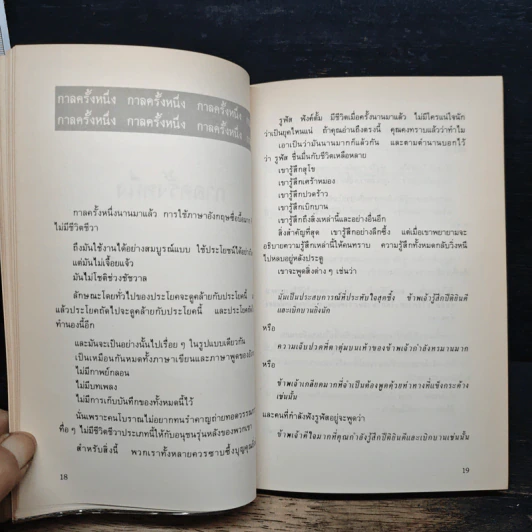 กาลครั้งหนึ่ง กาลครั้งหนึ่ง กาลครั้งหนึ่ง
กาลครั้งหนึ่ง กาลครั้งหนึ่ง กาลครั้งหนึ่ง
กาลครั้งหนึ่งนานมาแล้ว การใช้ภาษาอังกฤษ
ไม่มีชีวิตชีวา
ถึงมันใช้งานได้อย่างสมบูรณ์แบบ ใช้ประโยชน์ได้
แต่มันไม่เจื้อยแจ้ว
มันไม่โชติช่วงชัชวาล
ลักษณะโดยทั่วไปของประโยคจะดูคล้ายกับประโยคนี้
แล้วประโยคถัดไปจะดูคล้ายกับประโยคนี้ และประโยค
ทำนองนี้อีก
และมันจะเป็นอย่างนั้นไปเรื่อยๆ ในรูปแบบเดียวกัน
เป็นเหมือนกันหมดทั้งภาษาเขียนและภาษาพูดของ
ไม่มีกาพย์กลอน
ไม่มีบทเพลง
ไม่มีการเก็บบันทึกของทั้งหมดนี้ไว้
นั่นเพราะคนโบราณไม่อยากทนรำคาญถ่ายทอด
ทื่อๆ ไม่มีชีวิตชีวาประเภทนี้ให้กับอนุชนรุ่นหลังของพวกเขา
สำหรับสิ่งนี้ พวกเราทั้งหลายควรซาบซึ้งบุญคุณ
18
รูฟัส ฟังค์ตั้ม มีชีวิตเมื่อครั้งนานมาแล้ว ไม่มีใครแน่ใจนัก
ว่าเป็นยุคไหนแน่ ถ้าคุณอ่านถึงตรงนี้ คุณคงทราบแล้วว่าทำไม
เอาเป็นว่ามันนานมากก็แล้วกัน และตามตำนานบอกไว้
ว่า รูฟัส ชื่นมื่นกับชีวิตเหลือหลาย
เขารู้สึกสุขใจ
เขารู้สึกเศร้าหมอง
เขารู้สึกปวดร้าว
เขารู้สึกเบิกบาน
เขารู้สึกถึงสิ่งเหล่านี้และอย่างอื่นอีก
สิ่งสำคัญที่สุด เขารู้สึกอย่างลึกซึ้ง แต่เมื่อเขาพยายามจะ
อธิบายความรู้สึกเหล่านี้ให้คนทราบ ความรู้สึกทั้งหมดกลับวิ่งหนี
ไปหลบอยู่หลังประตู
เขาจะพูดสิ่งต่างๆ เช่นว่า
นั่นเป็นประสบการณ์ที่ประทับใจสุดซึ้ง ข้าพเจ้ารู้สึกปีติยินดี
และเบิกบานยิ่งนัก
หรือ
ความเจ็บปวดที่ตาตุ่มบนเท้าของข้าพเจ้ากำลังทรมานมาก
หรือ
ข้าพเจ้าเกลียดมากที่จำเป็นต้องพูดด้วยท่าทางที่แข็งกระด้าง
เช่นนั้น
และคนที่กำลังฟังรูฟัสอยู่จะพูดว่า
ข้าพเจ้าดีใจมากที่คุณกำลังรู้สึกปีติยินดีและเบิกบานเช่นนั้น
19